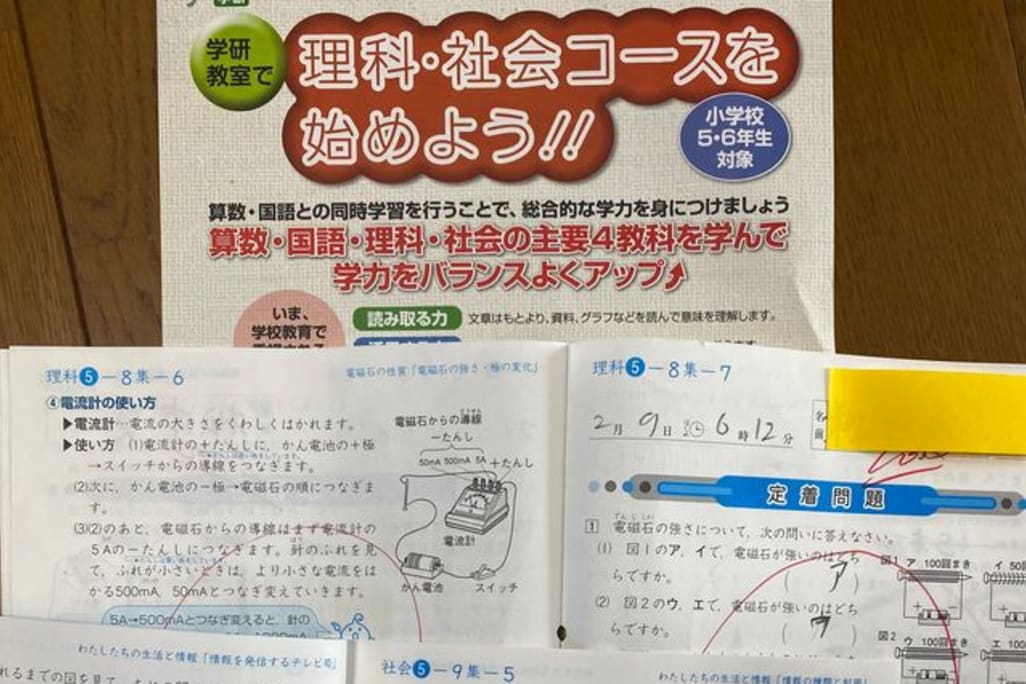 学研
教室で
理科・社会コースを
始めよう!!
小学校
5・6年生
対象
算数・国語との同時学習を行うことで、総合的な学力を身につけましょう
算数・国語・理科・社会の主要4教科を学んで
学力をバランスよくアップ
いま、
学校教育で
読み取る力 文章はもとより、資料、グラフなどを読んで意味を理解します。
理科5-8集-6
電磁石の性質「電磁石の強さ・極の変化」
④電流計の使い方
▶電流計…電流の大きさをくわしくはかれます。
▶使い方 (1)電流計の+たんしに、かん電池の+極
→スイッチからの導線をつなぎます。
(2)次に、かん電池の-極→電磁石の順につなぎま
す。
(3)(2)のあと、電磁石からの導線はまず電流計の
5Aの-たんしにつなぎます。針のふれを見
て、ふれが小さいときは、より小さな電流をは
かる500mA、50mAとつなぎ変えていきます。
5A→500mAとつなぎ変えると、針の
電磁石からの導線
-たんし
50mA 500mA 5A +たんし
電流計
かん電池 スイッチ
理科5-8集-7
2月9日 6時12分
名前
定着問題
1 電磁石の強さについて、次の問いに答えなさい。
(1) 図1のア、イで、電磁石が強いのはどち
らですか。 (ア)
(2) 図2のウ、エで、電磁石が強いのはどち
らですか。 (ウ)
図1 ア 100回まき イ 50回
図2 ウ 100回まき エ 100
わたしたちの生活と情報「情報を発信するテレビ局」
れるまでの図を見て、
社会5-9集-5
わたしたちの生活と情報「情報の種類と利用」